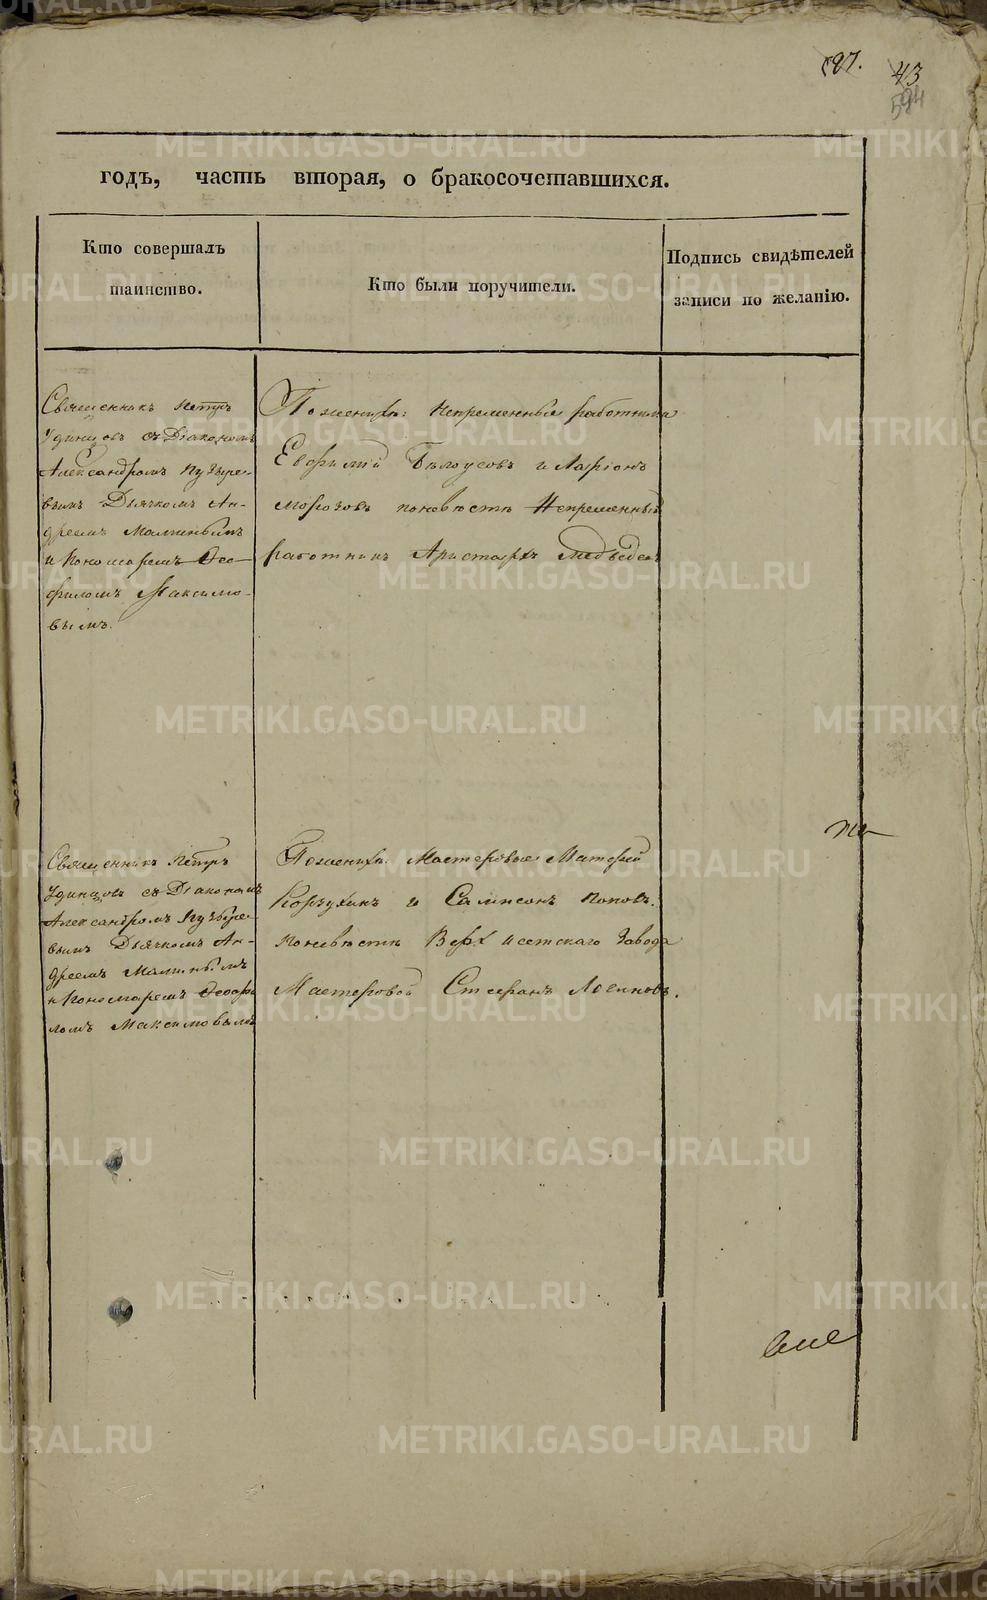 197.
43
594
годъ, часть вторая, о бракосочетавшихся.
Кто совершалъ
таинство.
Кто были поручители.
Подпись свидѣтелей
записи по желанію.
Священникъ Петръ
Удинцовъ съ Діакономъ
Александромъ Пузыре-
вымъ Дьячкомъ Ан-
дреемъ Малининымъ
и Пономаремъ Ѳео-
филомъ Максимо-
вымъ.
Поженихѣ: Непременные работники
Евфимій Бѣлоусовъ и Ларіонъ
Морозовъ поневѣстѣ Непременный
работникъ Аристархъ Медведевъ
Священникъ Петръ
Удинцовъ съ Діакономъ
Александромъ Пузыре-
вымъ Дьячкомъ Ан-
дреемъ Малининымъ
и Пономаремъ Ѳеофи
ломъ Максимовымъ
Поженихѣ: Мастеровые Матфей
Корзухинъ и Сампсонъ Поповъ.
Поневѣстѣ Верх Исетскаго Завода
Мастеровой Стефанъ Логиновъ.
METRIKI.GASO-URAL.RU